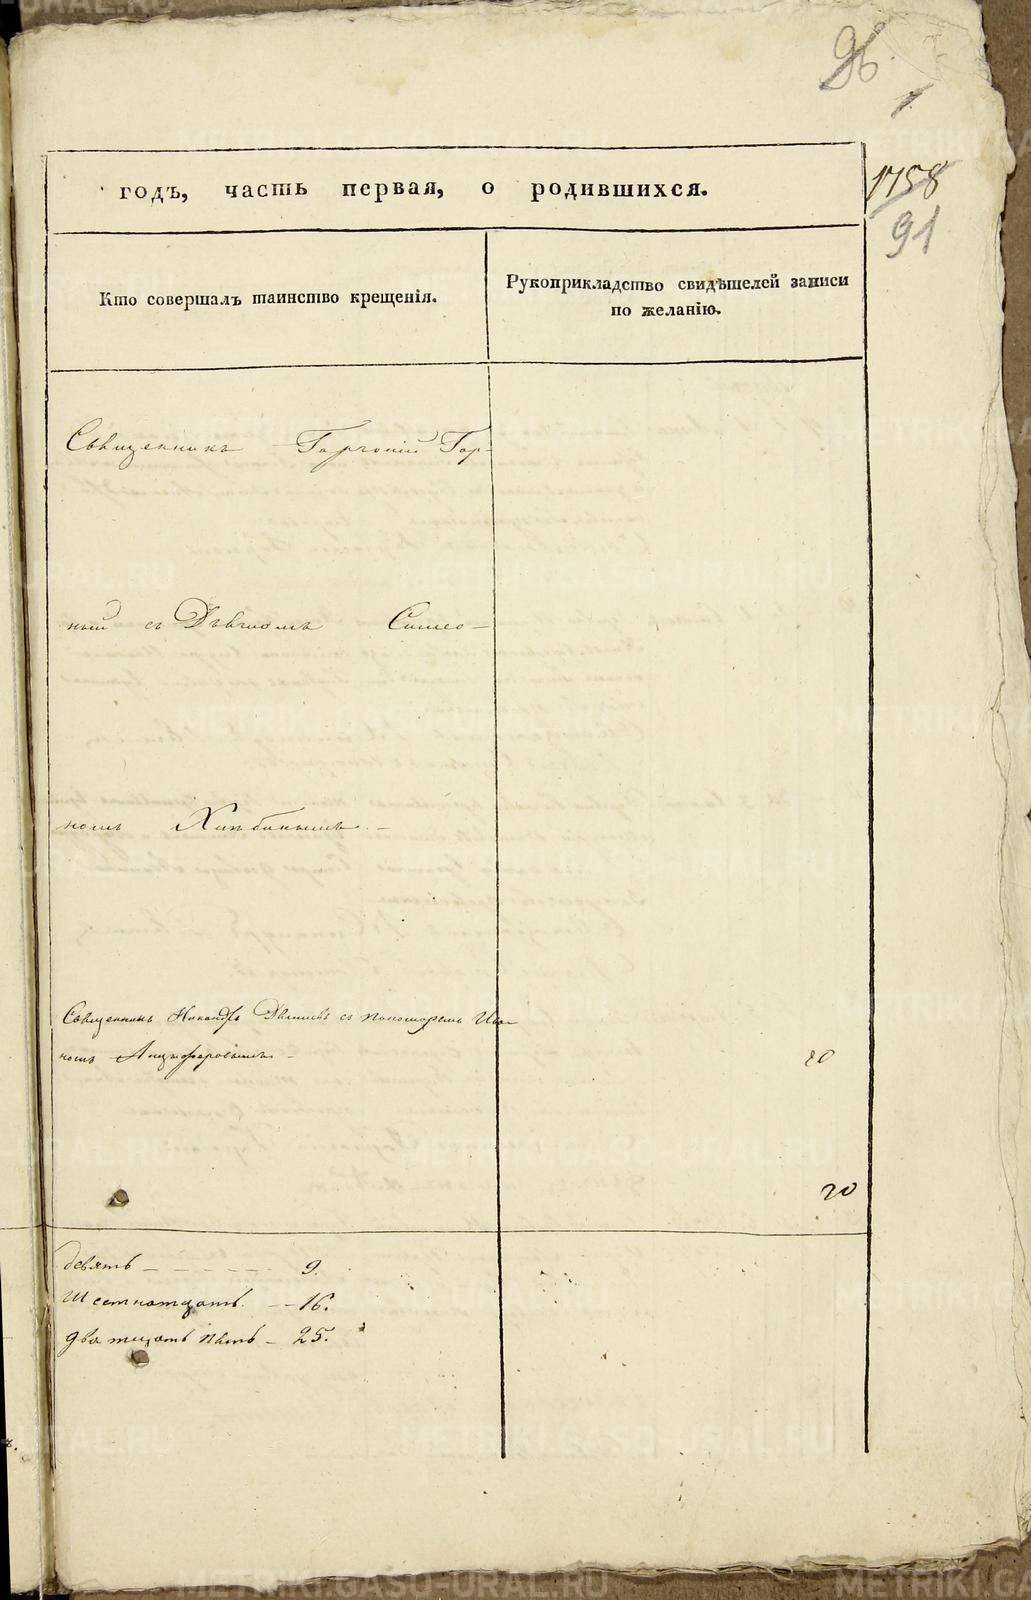 96
1.
годъ, часть первая, о родившихся.
1758
91
Кто совершалъ таинство крещенія.
Рукоприкладство свидѣтелей записи
по желанію.
Священникъ Горгоній Гор-
ный съ Дьячкомъ Симео-
номъ Хлѣбинымъ. -
Священникъ Никандръ съ пономаремъ Ива-
номъ Анциферовымъ -
20
20
девять - - - - - - 9.
Шестнатцать. - - 16.
дватцать пять - 25.
METRIKI.GASO-URAL.RU